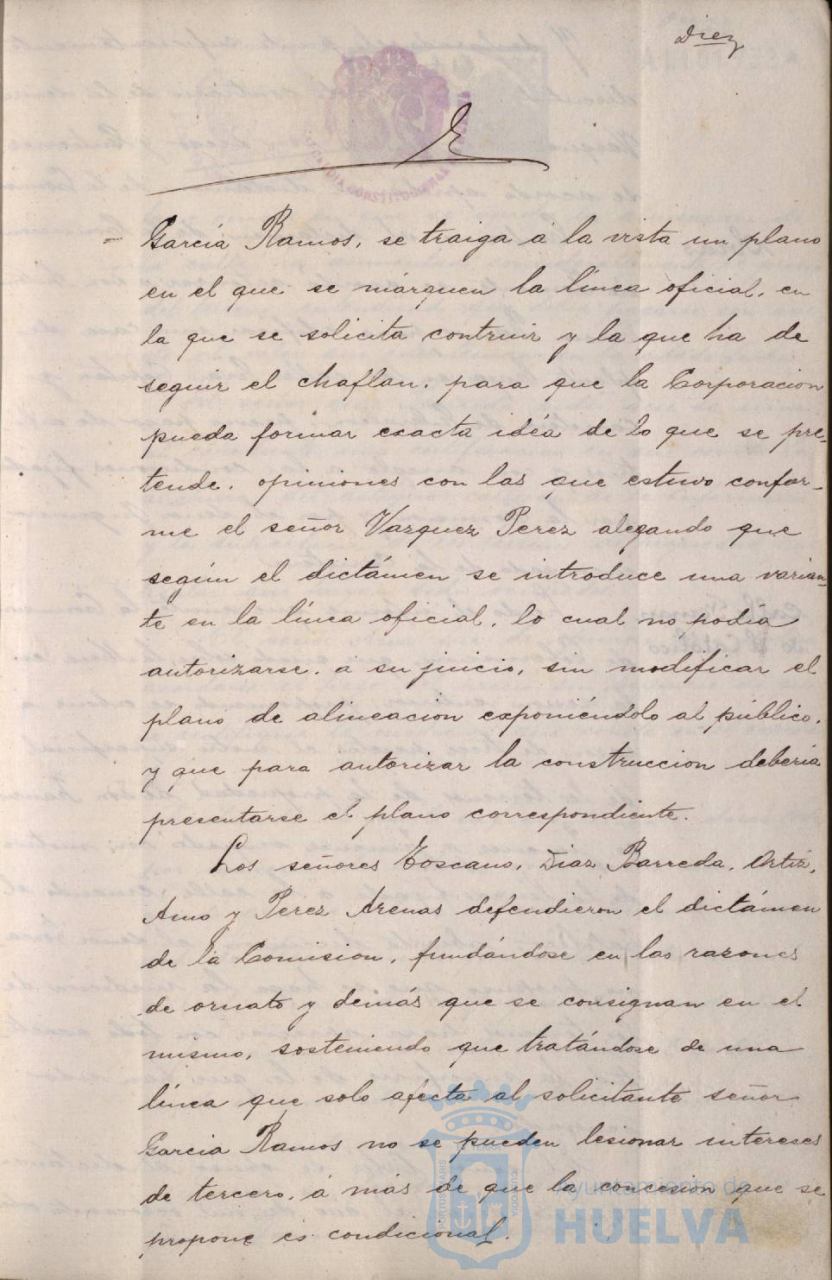 Diez
ALCALDIA CONSTITUCIONAL
García Ramos, se traiga á la vista un plano
en el que se márquen la línea oficial, en
la que se solicita contruir y la que ha de
seguir el chaflan, para que la Corporacion
pueda formar exacta idéa de lo que se pre-
tende, opiniones con las que estuvo confor-
me el señor Vazquez Perez alegando que
según el dictámen se introduce una varian-
te en la línea oficial, lo cual no podía
autorizarse, a su juicio, sin modificar el
plano de alineacion exponiéndolo al público,
y que para autorizar la construccion debería
presentarse el plano correspondiente.
Los señores Toscano, Diaz Barreda, Ortiz,
Amo y Perez Arenas defendieron el dictámen
de la Comision, fundándose en las razones
de ornato y demás que se consignan en el
mismo, sosteniendo que tratándose de una
línea que solo afecta al solicitante señor
Garcia Ramos no se pueden lesionar intereses
de tercero, á más de que la concesion que se
propone es condicional.
Ayuntamiento de
HUELVA